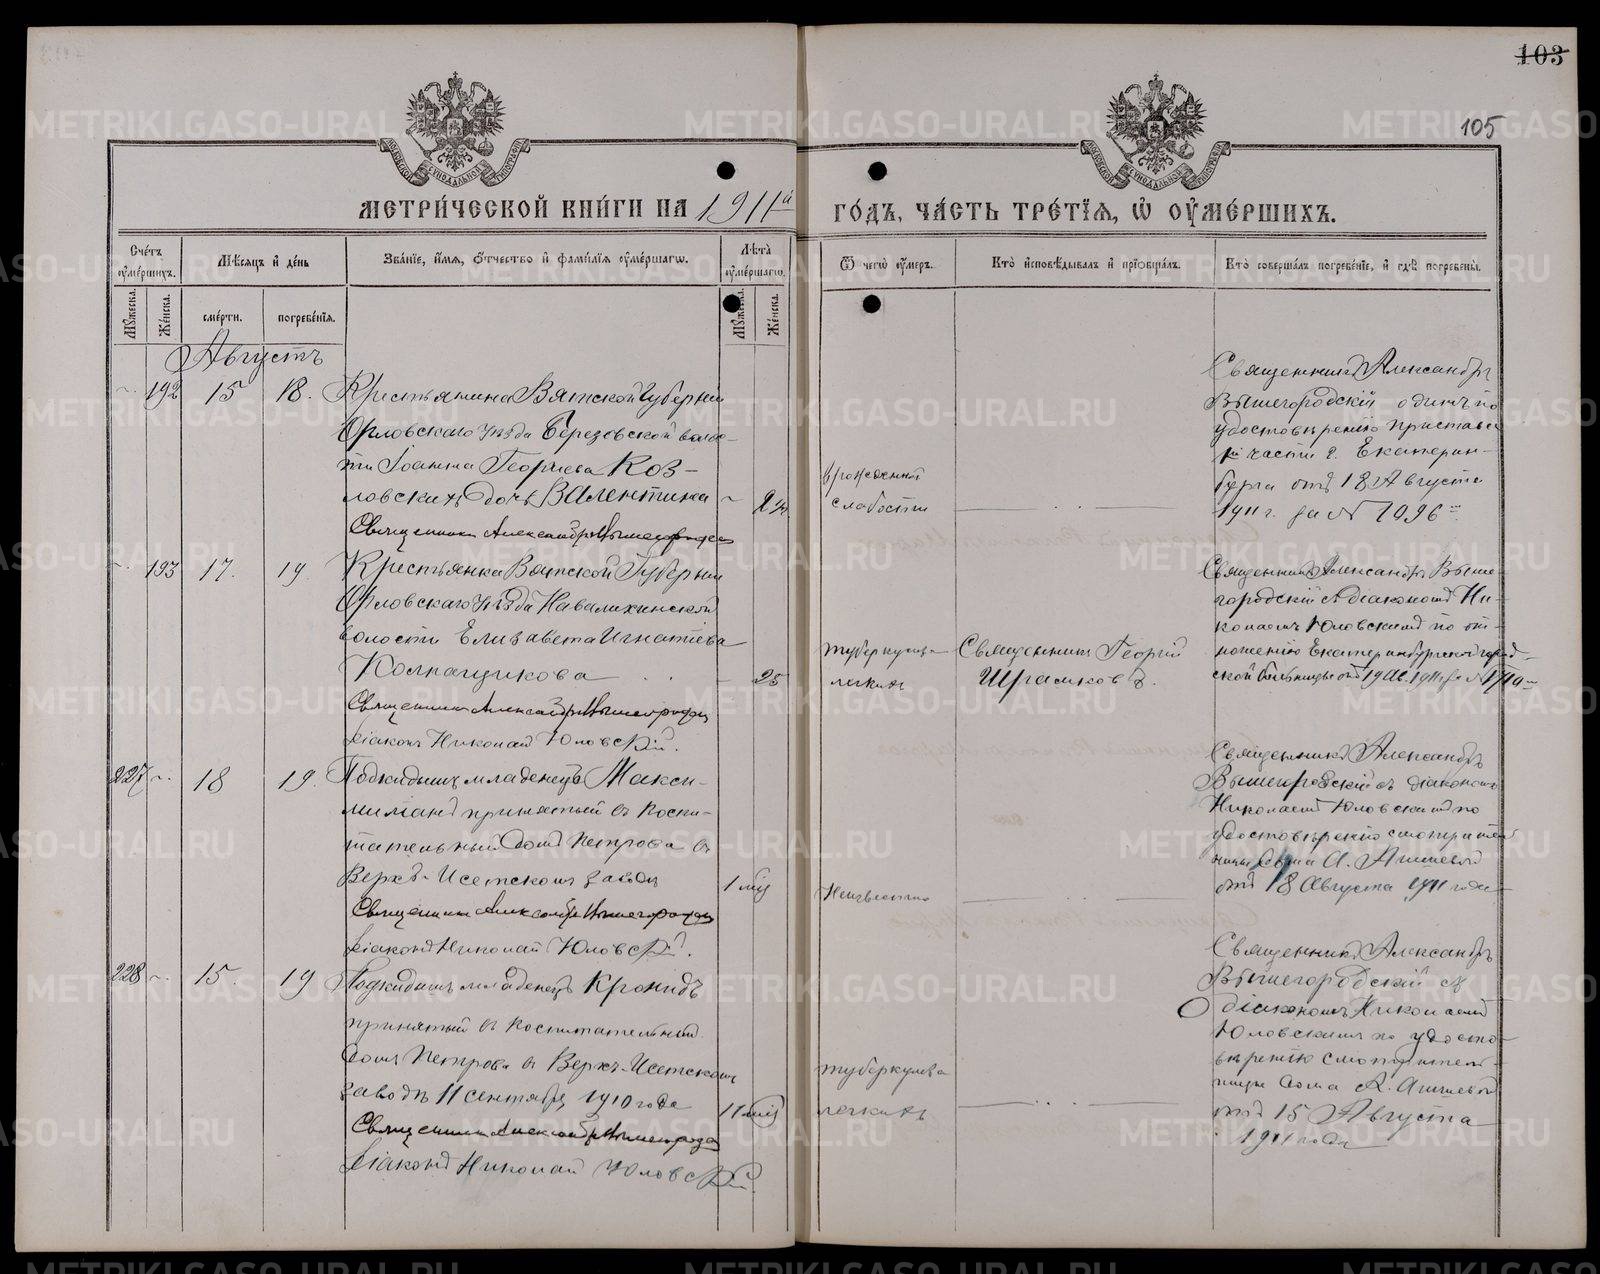 103
105
МЕТРИ́ЧЕСКОЙ КНИ́ГИ НА 1911й
ГО́ДЪ, ЧА́СТЬ ТРЕ́ТІѦ, Ѡ҆ ОУ҆МЕ́РШИХЪ.
Сче́тъ оу҆ме́ршихъ.
Мѣ́сяцъ и҆ де́нь
Зва́нїе, и҆́мя, ѻ҆́тчество и҆ фами́лїя оу҆ме́ршагѡ.
Лѣ́та оу҆ме́ршагѡ.
Ѿ чегѡ̀ оу҆́меръ.
Кто̀ и҆сповѣ́дывалъ и҆ прїѡбща́лъ.
Кто̀ соверша́лъ погребе́нїе, и҆ гдѣ̀ погребены̀.
Му́жеска.
Же́нска.
сме́рти.
погребе́нїя.
Му́жеска.
Же́нска.
Августъ
192 15 18.
Крестьянина Вятской губерніи
Орловскаго уѣзда Березовской волос-
ти Іоанна Георгіева Коз-
ловскихъ дочь Валентина
2 н.
Священникъ Александръ Вышегородскій
врожденной
слабости
Священникъ Александръ
Вышегородскій одинъ по
удостовѣренію пристава
части г. Екатерин-
бурга отъ 18 Августа
1911 г. за № 7096
193 17. 19.
Крестьянка Вятской Губерніи
Орловскаго уѣзда Навалихинской
волости Елизавета Игнатіева
Колпащикова
25
Священникъ Александръ Вышегородскій
Діаконъ Николай Юловскій.
туберкулеза
легкихъ
Священникъ Георгій
Игрольковъ
Священникъ Александръ Выше-
городскій съ діакономъ Ни-
колаемъ Юловскимъ по от-
ношенію Екатеринбургской город-
ской больницы отъ 19 Авг. 1911 г. за №
227 18 19.
Подкидышъ младенецъ Макси-
миліанъ принятый въ Воспи-
тательный Домъ Петрова въ
Верхъ-Исетскомъ заводѣ
1 мѣс
Священникъ Александръ Вышегородскій
Діаконъ Николай Юловскій.
Неизвѣстно
Священникъ Александръ
Вышегородскій съ діакономъ
Николаемъ Юловскимъ по
удостовѣренію смотритель-
ницы Дома А. Агишевой
отъ 18 Августа 1911 года
228 15. 19
Подкидышъ младенецъ Кронидъ
принятый въ Воспитательный
Домъ Петрова въ Верхъ-Исетскомъ
заводѣ 11 сентября 1910 года
11 мѣс
Священникъ Александръ Вышегородскій
Діаконъ Николай Юловскій
туберкулеза
легкихъ
Священникъ Александръ
Вышегородскій съ
діакономъ Николаемъ
Юловскимъ по удосто-
вѣренію смотритель-
ницы Дома А. Агишевой
отъ 15 Августа
1911 года
METRIKI.GASO-URAL.RU